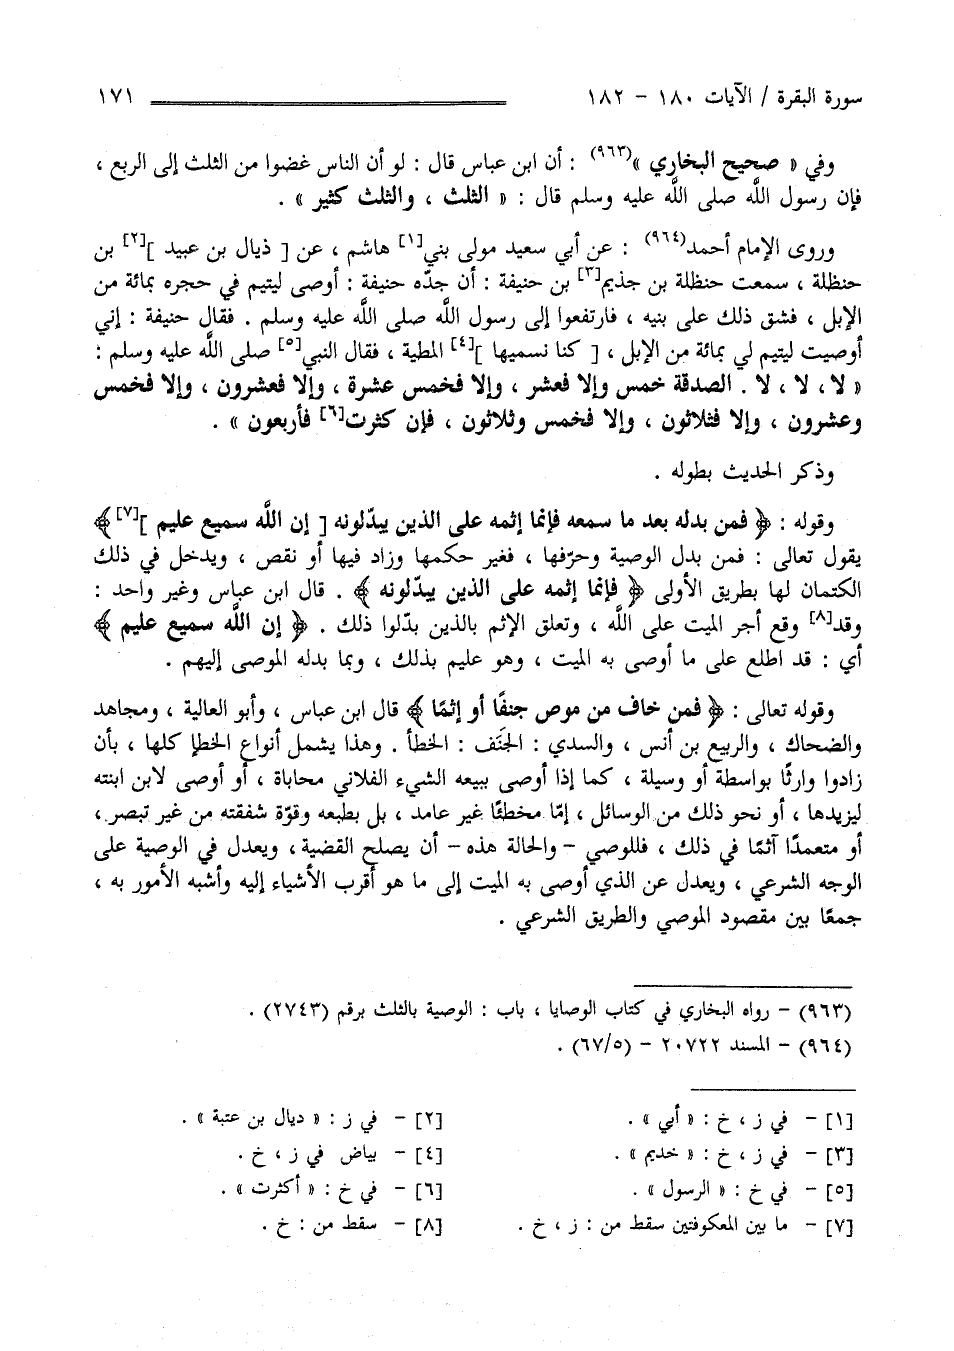 سورة البقرة / الآيات ١٨٠ - ١٨٢ ١٧١
وفي « صحيح البخاري »(٩٦٣) : أن ابن عباس قال : لو أن الناس غضوا من الثلث إلى الربع ،
فإن رسول اللَّه صلى اللَّه عليه وسلم قال : « الثلث ، والثلث كثير » .
وروى الإمام أحمد(٩٦٤) : عن أبي سعيد مولى بني[١] هاشم ، عن [ ذيال بن عبيد ][٢] بن
حنظلة ، سمعت حنظلة بن جذيم[٣] بن حنيفة : أن جدّه حنيفة : أوصى ليتيم في حجره بمائة من
الإبل ، فشق ذلك على بنيه ، فارتفعوا إلى رسول اللَّه صلى اللَّه عليه وسلم . فقال حنيفة : إني
أوصيت ليتيم لي بمائة من الإبل ، [ كنا نسميها ][٤] المطية ، فقال النبي[٥] صلى اللَّه عليه وسلم :
« لا ، لا ، لا . الصدقة خمس وإلا فعشر ، وإلا فخمس عشرة ، وإلا فعشرون ، وإلا فخمس
وعشرون ، وإلا فثلاثون ، وإلا فخمس وثلاثون ، فإن كثرت[٦] فأربعون » .
وذكر الحديث بطوله .
وقوله : ﴿ فمن بدله بعد ما سمعه فإنما إثمه على الذين يبدّلونه [ إن اللَّه سميع عليم ][٧] ﴾
يقول تعالى : فمن بدل الوصية وحرّفها ، فغير حكمها وزاد فيها أو نقص ، ويدخل في ذلك
الكتمان لها بطريق الأولى ﴿ فإنما إثمه على الذين يبدّلونه ﴾ . قال ابن عباس وغير واحد :
وقد[٨] وقع أجر الميت على اللَّه ، وتعلق الإثم بالذين بدّلوا ذلك . ﴿ إن اللَّه سميع عليم ﴾
أي : قد اطلع على ما أوصى به الميت ، وهو عليم بذلك ، وبما بدله الموصى إليهم .
وقوله تعالى : ﴿ فمن خاف من موص جنفًا أو إثمًا ﴾ قال ابن عباس ، وأبو العالية ، ومجاهد
والضحاك ، والربيع بن أنس ، والسدي : الجَنَف : الخطأ . وهذا يشمل أنواع الخطإ كلها ، بأن
زادوا وارثًا بواسطة أو وسيلة ، كما إذا أوصى ببيعه الشيء الفلاني محاباة ، أو أوصى لابن ابنته
ليزيدها ، أو نحو ذلك من الوسائل ، إمّا مخطئًا غير عامد ، بل بطبعه وقوّة شفقته من غير تبصر ،
أو متعمدًا آثمًا في ذلك ، فللوصي - والحالة هذه - أن يصلح القضية ، ويعدل في الوصية على
الوجه الشرعي ، ويعدل عن الذي أوصى به الميت إلى ما هو أقرب الأشياء إليه وأشبه الأمور به ،
جمعًا بين مقصود الموصي والطريق الشرعي .
(٩٦٣) - رواه البخاري في كتاب الوصايا ، باب : الوصية بالثلث برقم (٢٧٤٣) .
(٩٦٤) - المسند ٢٠٧٢٢ - (٦٧/٥) .
[١] - في ز ، خ : « أبي » . [٢] - في ز : « ديال بن عتبة » .
[٣] - في ز ، خ : « خديم » . [٤] - بياض في ز ، خ .
[٥] - في خ : « الرسول » . [٦] - في خ : « أكثرت » .
[٧] - ما بين المعكوفتين سقط من : ز ، خ . [٨] - سقط من : خ .